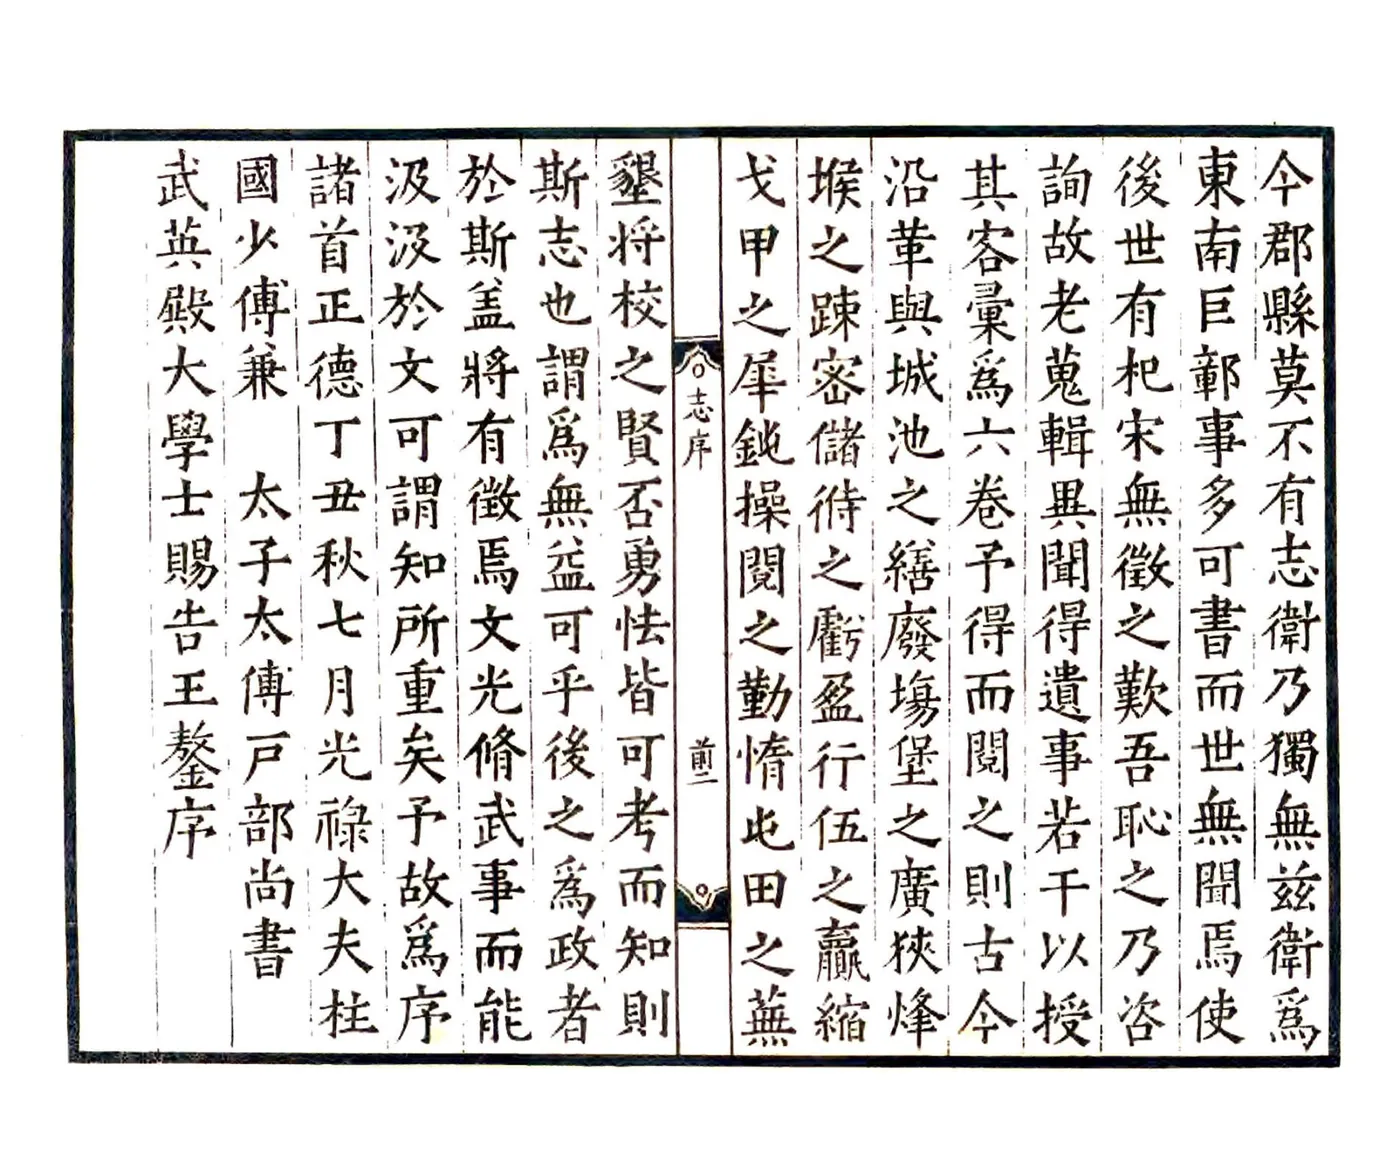 今郡縣莫不有志衛乃獨無茲衛爲
東南巨鄣事多可書而世無聞焉使
後世有杞宋無徵之歎吾恥之乃咨
詢故老蒐輯異聞得遺事若干以授
其客彙爲六卷予得而閱之則古今
沿革與城池之繕廢塲堡之廣狹烽
堠之踈密儲偫之虧盈行伍之羸縮
戈甲之犀鈍操閱之勤惰屯田之蕪
志序
前二
墾将校之賢否勇怯皆可考而知則
斯志也謂爲無益可乎後之爲政者
於斯盖將有徵焉文光脩武事而能
汲汲於文可謂知所重矣予故爲序
諸首正德丁丑秋七月光禄大夫柱
國少傅兼 太子太傅戸部尚書
武英殿大學士賜告王鏊序